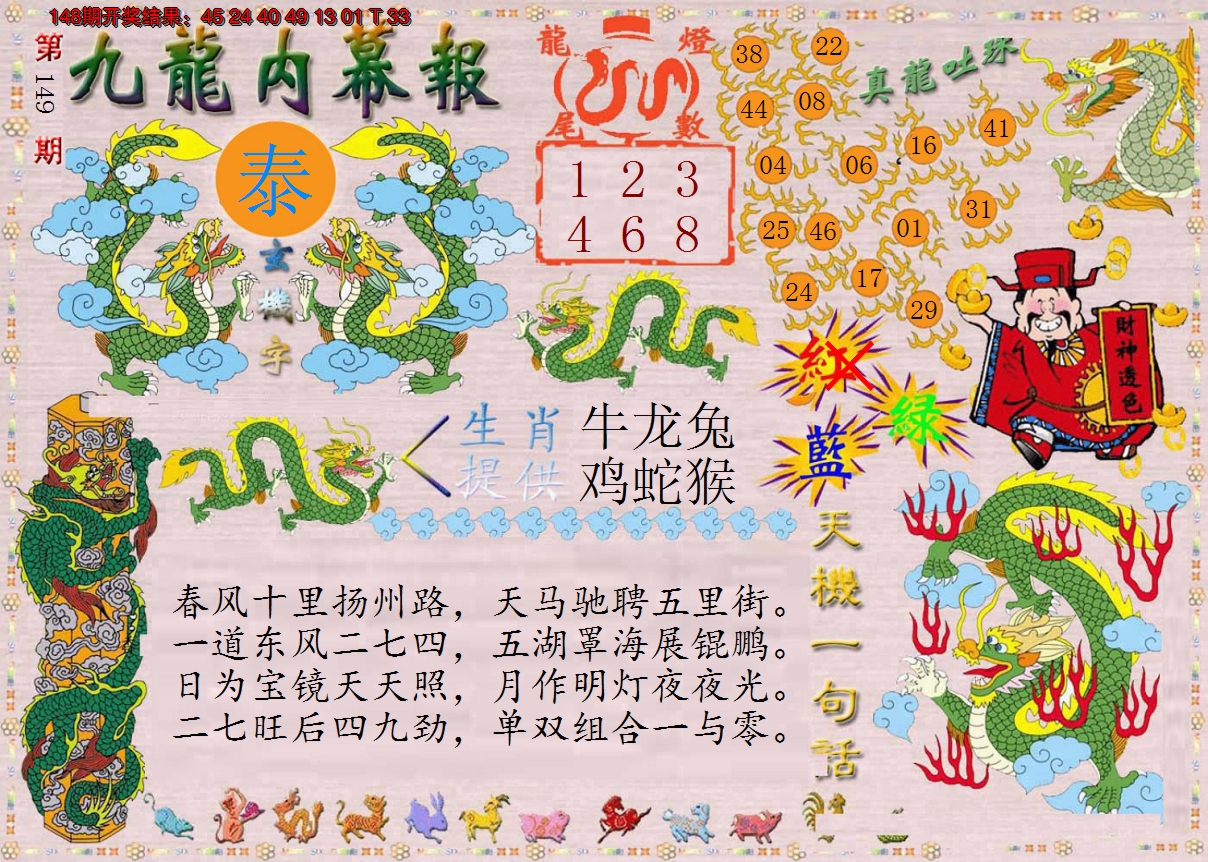 148期开奖结果：45 24 40 49 13 01 T 33
第149期
九龍内幕報
泰
玄機字
龍燈尾數
1 2 3
4 6 8
真龍吐珠
38 22
44 08
04 06 16 41
25 46 01 31
24 17 29
財神透色
紅
綠
藍
生肖提供
牛龙兔
鸡蛇猴
春风十里扬州路，天马驰聘五里街。
一道东风二七四，五湖罩海展锟鹏。
日为宝镜天天照，月作明灯夜夜光。
二七旺后四九劲，单双组合一与零。
天機一句話